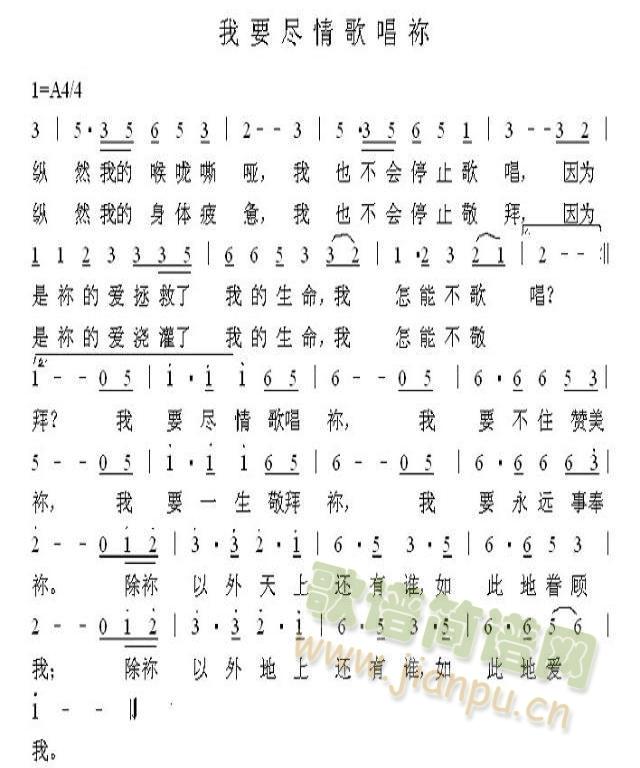 我要尽情歌唱祢
1=A4/4
3 | 5·3 5 6 5 3 | 2 - - 3 | 5·3 5 6 5 1 | 3 - - 3 5 |
纵然我的喉咙嘶哑，我也不会停止歌唱，因为
纵然我的身体疲惫，我也不会停止敬拜，因为
1 1 2 3 3 3 5 | 6 6 5 3 3 2 | 1·2 3 2 1 | 2 - - :||
是祢的爱拯救了我的生命,我怎能不歌唱？
是祢的爱浇灌了我的生命,我怎能不敬
1 - - 0 5 | 1·1 1 6 5 | 6 - - 0 5 | 6·6 6 5 3 |
拜？我要尽情歌唱祢，我要不住赞美
5 - - 0 5 | 1·1 1 6 5 | 6 - - 0 5 | 6·6 6 6 3 |
祢，我要一生敬拜祢，我要永远事奉
2 - - 0 1 2 | 3·3 2·1 | 6·5 3·5 | 6·6 5 3 |
祢。除祢以外天上还有谁,如此地眷顾
2 - - 0 1 2 | 3·3 2·1 | 6·5 3·5 | 6·6 5 6 |
我；除祢以外地上还有谁,如此地爱
1 - - ||
我。
歌谱简谱网
www.jianpu.cn